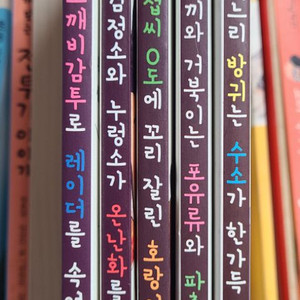 깨비감투로 레이더를 속
검정소와 누렁소가 온난화를
섭씨 0도에 꼬리 잘린 호랑
끼와 거북이는 포유류와 파
느리 방귀는 수소가 한가득